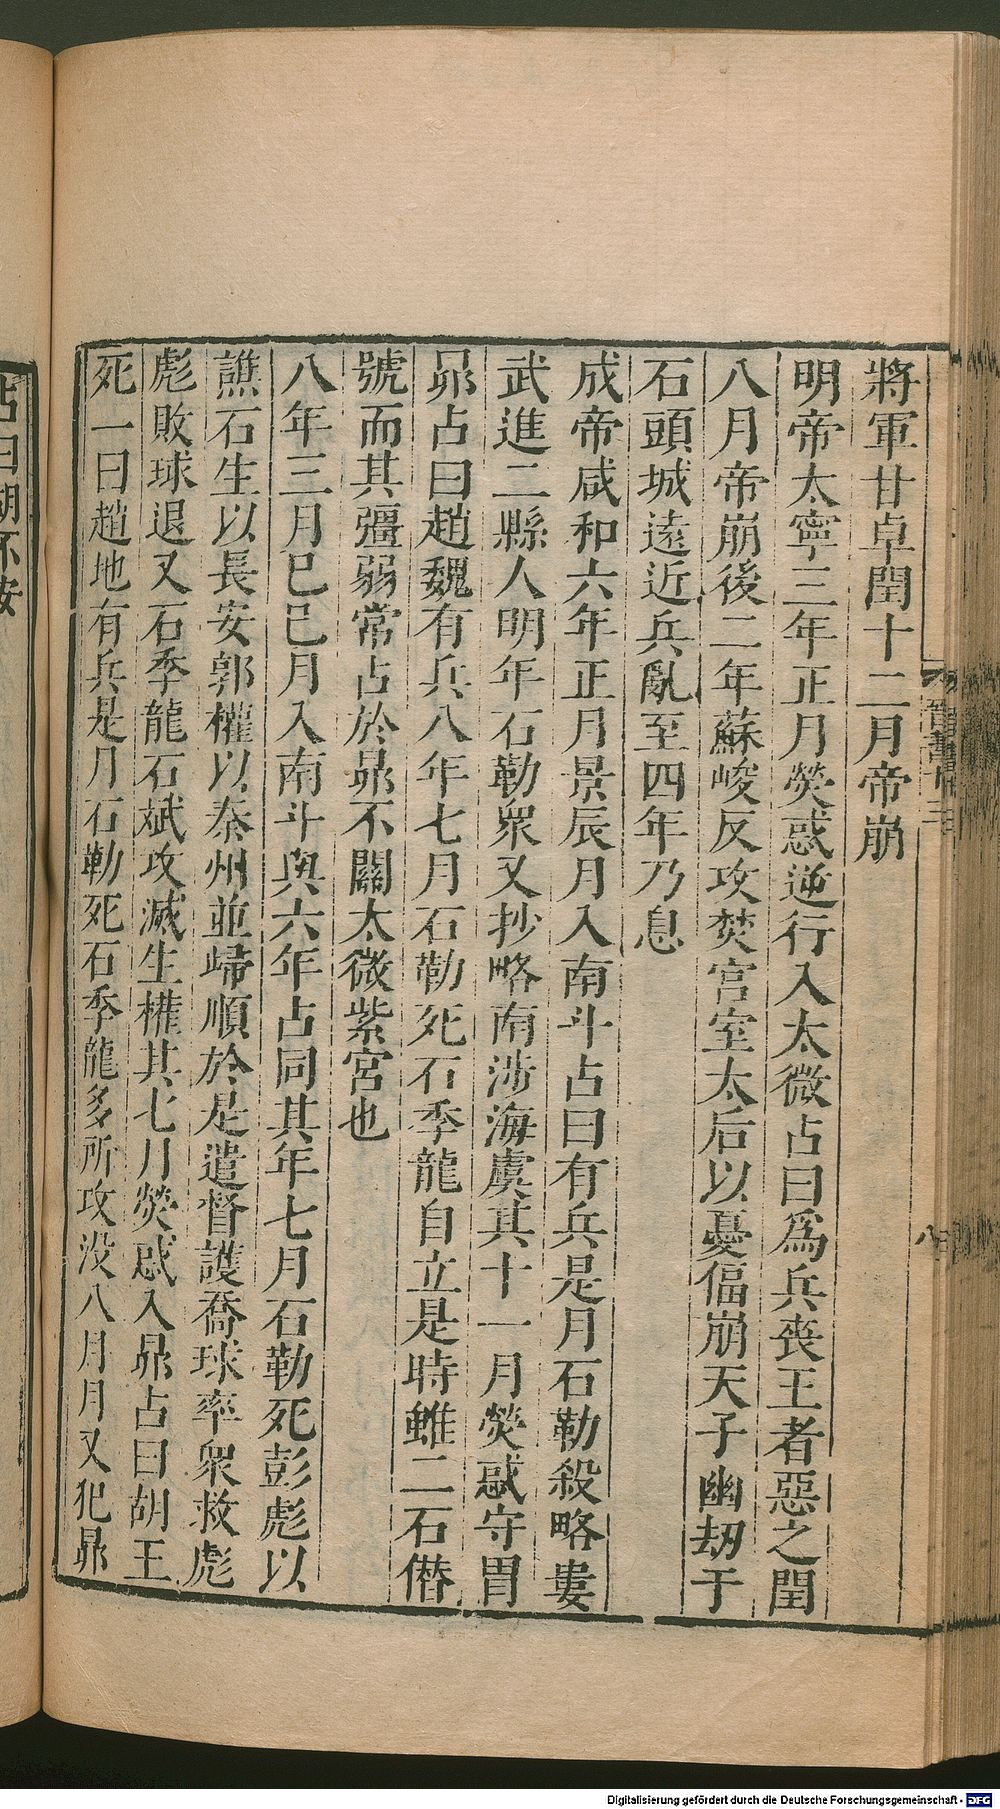 將軍甘卓閏十二月帝崩
明帝太寧三年正月熒惑逆行入太微占曰爲兵喪王者惡之閏
八月帝崩後二年蘇峻反攻焚宮室太后以憂偪崩天子幽劫于
石頭城遠近兵亂至四年乃息
成帝咸和六年正月景辰月入南斗占曰有兵是月石勒殺略婁
武進二縣人明年石勒衆又抄略南沙海虞其十一月熒惑守胃
昴占曰趙魏有兵八年七月石勒死石季龍自立是時雖二石僭
號而其彊弱常占於昴不關太微紫宮也
八年三月己巳月入南斗與六年占同其年七月石勒死彭彪以
譙石生以長安郭權以秦州並歸順於是遣督護喬球率衆救彪
彪敗球退又石季龍石斌攻滅生權其七月熒惑入昴占曰胡王
死一曰趙地有兵是月石勒死石季龍多所攻没八月月又犯昴
占曰胡不安
晉書十三
八
Digitalisierung gefördert durch die Deutsche Forschungsgemeinschaft - DFG